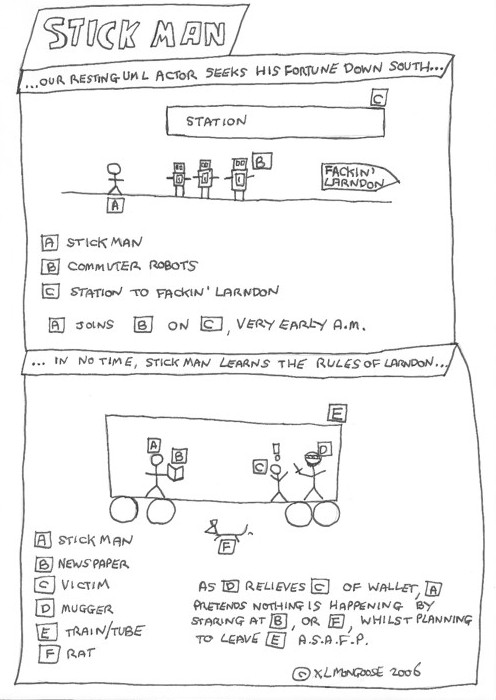 STICK MAN
...OUR RESTING UML ACTOR SEEKS HIS FORTUNE DOWN SOUTH...
C
STATION
B
FACKIN'
LARNDON
A
A STICK MAN
B COMMUTER ROBOTS
C STATION TO FACKIN' LARNDON
A JOINS B ON C, VERY EARLY A.M.
... IN NO TIME, STICK MAN LEARNS THE RULES OF LARNDON...
E
A
B
!
D
C
F
A STICK MAN
B NEWSPAPER
C VICTIM
D MUGGER
E TRAIN/TUBE
F RAT
AS D RELIEVES C OF WALLET, A
PRETENDS NOTHING IS HAPPENING BY
STARING AT B, OR F, WHILST PLANNING
TO LEAVE E A.S.A.F.P.
© XLMONGOOSE 2006